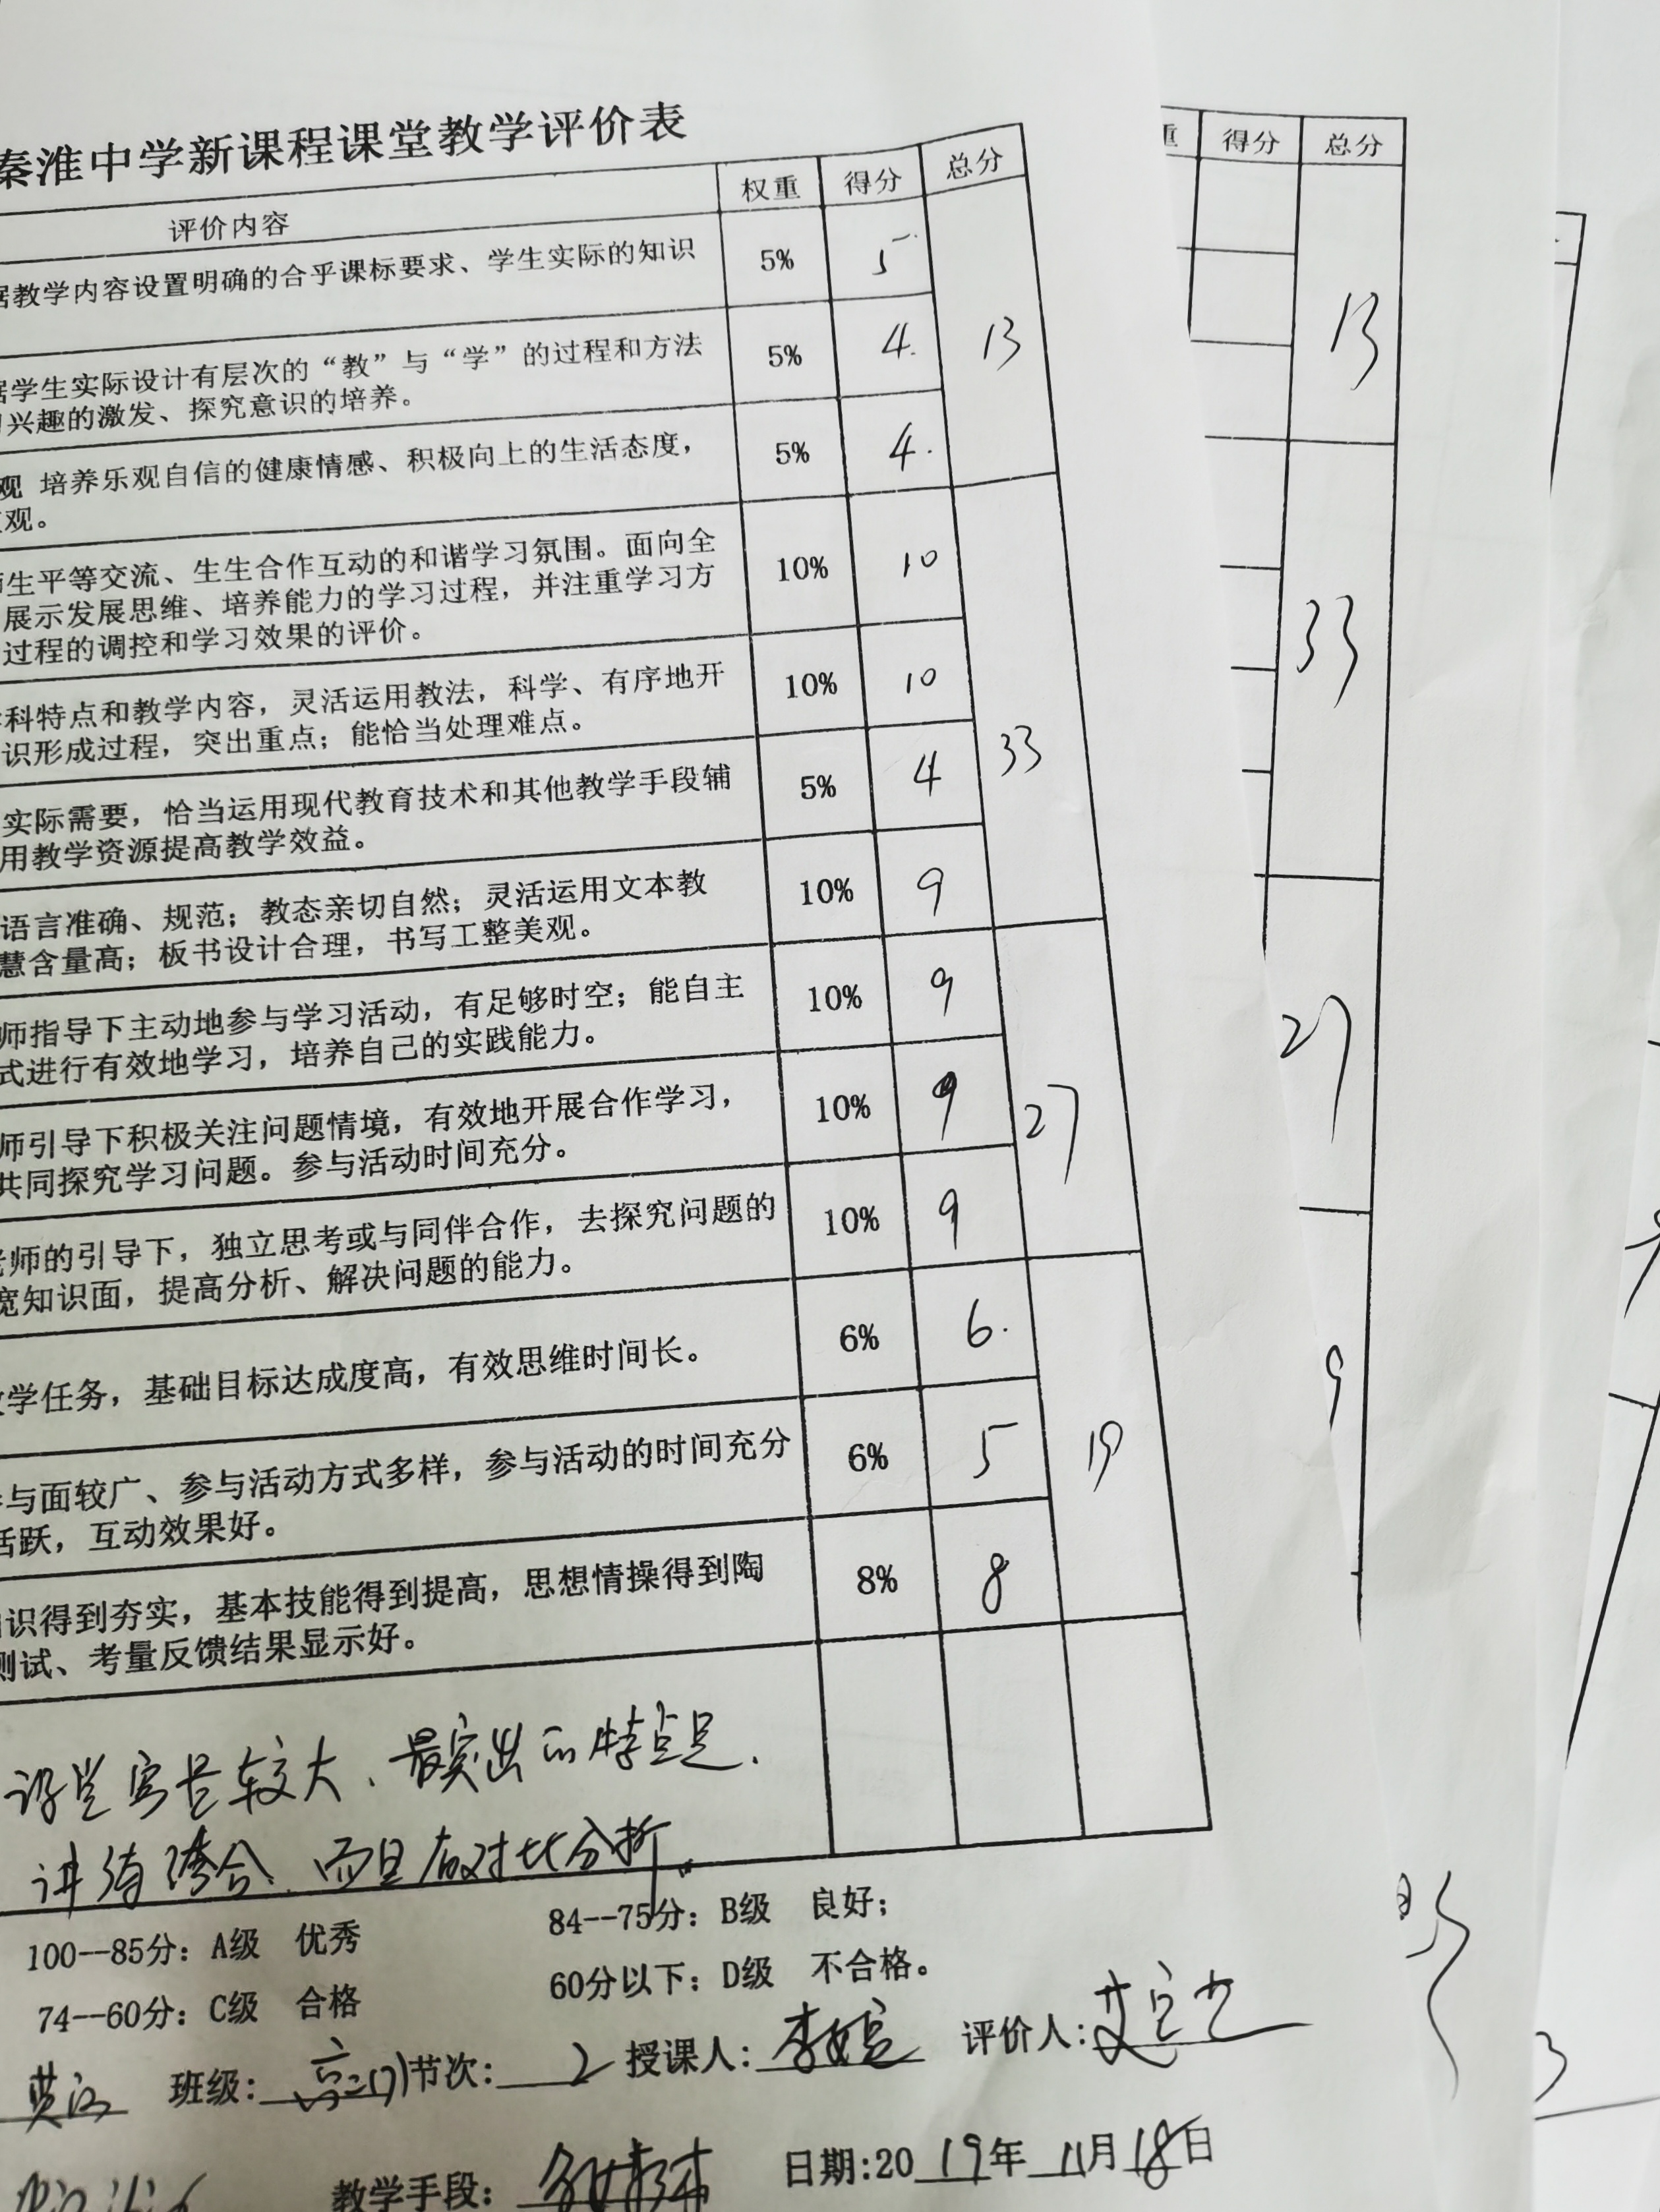 秦淮中学新课程课堂教学评价表
评价内容 权重 得分 总分
据教学内容设置明确的合乎课标要求、学生实际的知识 5% 5 13
据学生实际设计有层次的“教”与“学”的过程和方法 5% 4.
兴趣的激发、探究意识的培养。
观 培养乐观自信的健康情感、积极向上的生活态度， 5% 4.
观。
师生平等交流、生生合作互动的和谐学习氛围。面向全 10% 10 33
展示发展思维、培养能力的学习过程，并注重学习方
过程的调控和学习效果的评价。
学科特点和教学内容，灵活运用教法，科学、有序地开 10% 10
识形成过程，突出重点；能恰当处理难点。
实际需要，恰当运用现代教育技术和其他教学手段辅 5% 4
用教学资源提高教学效益。
语言准确、规范；教态亲切自然；灵活运用文本教 10% 9
慧含量高；板书设计合理，书写工整美观。
师指导下主动地参与学习活动，有足够时空；能自主 10% 9 27
式进行有效地学习，培养自己的实践能力。
师引导下积极关注问题情境，有效地开展合作学习， 10% 9
共同探究学习问题。参与活动时间充分。
老师的引导下，独立思考或与同伴合作，去探究问题的 10% 9
宽知识面，提高分析、解决问题的能力。
教学任务，基础目标达成度高，有效思维时间长。 6% 6. 19
参与面较广、参与活动方式多样，参与活动的时间充分 6% 5
活跃，互动效果好。
知识得到夯实，基本技能得到提高，思想情操得到陶 8% 8
测试、考量反馈结果显示好。
课堂容量较大、最突出的特点是、
讲 而且有对比分析。
100--85分：A级 优秀 84--75分：B级 良好；
74--60分：C级 合格 60分以下：D级 不合格。
班级: 高二(7) 节次: 2 授课人: 评价人:
教学手段: 多媒体 日期:2019年 11月18日
重 得分 总分
13
33
27
9